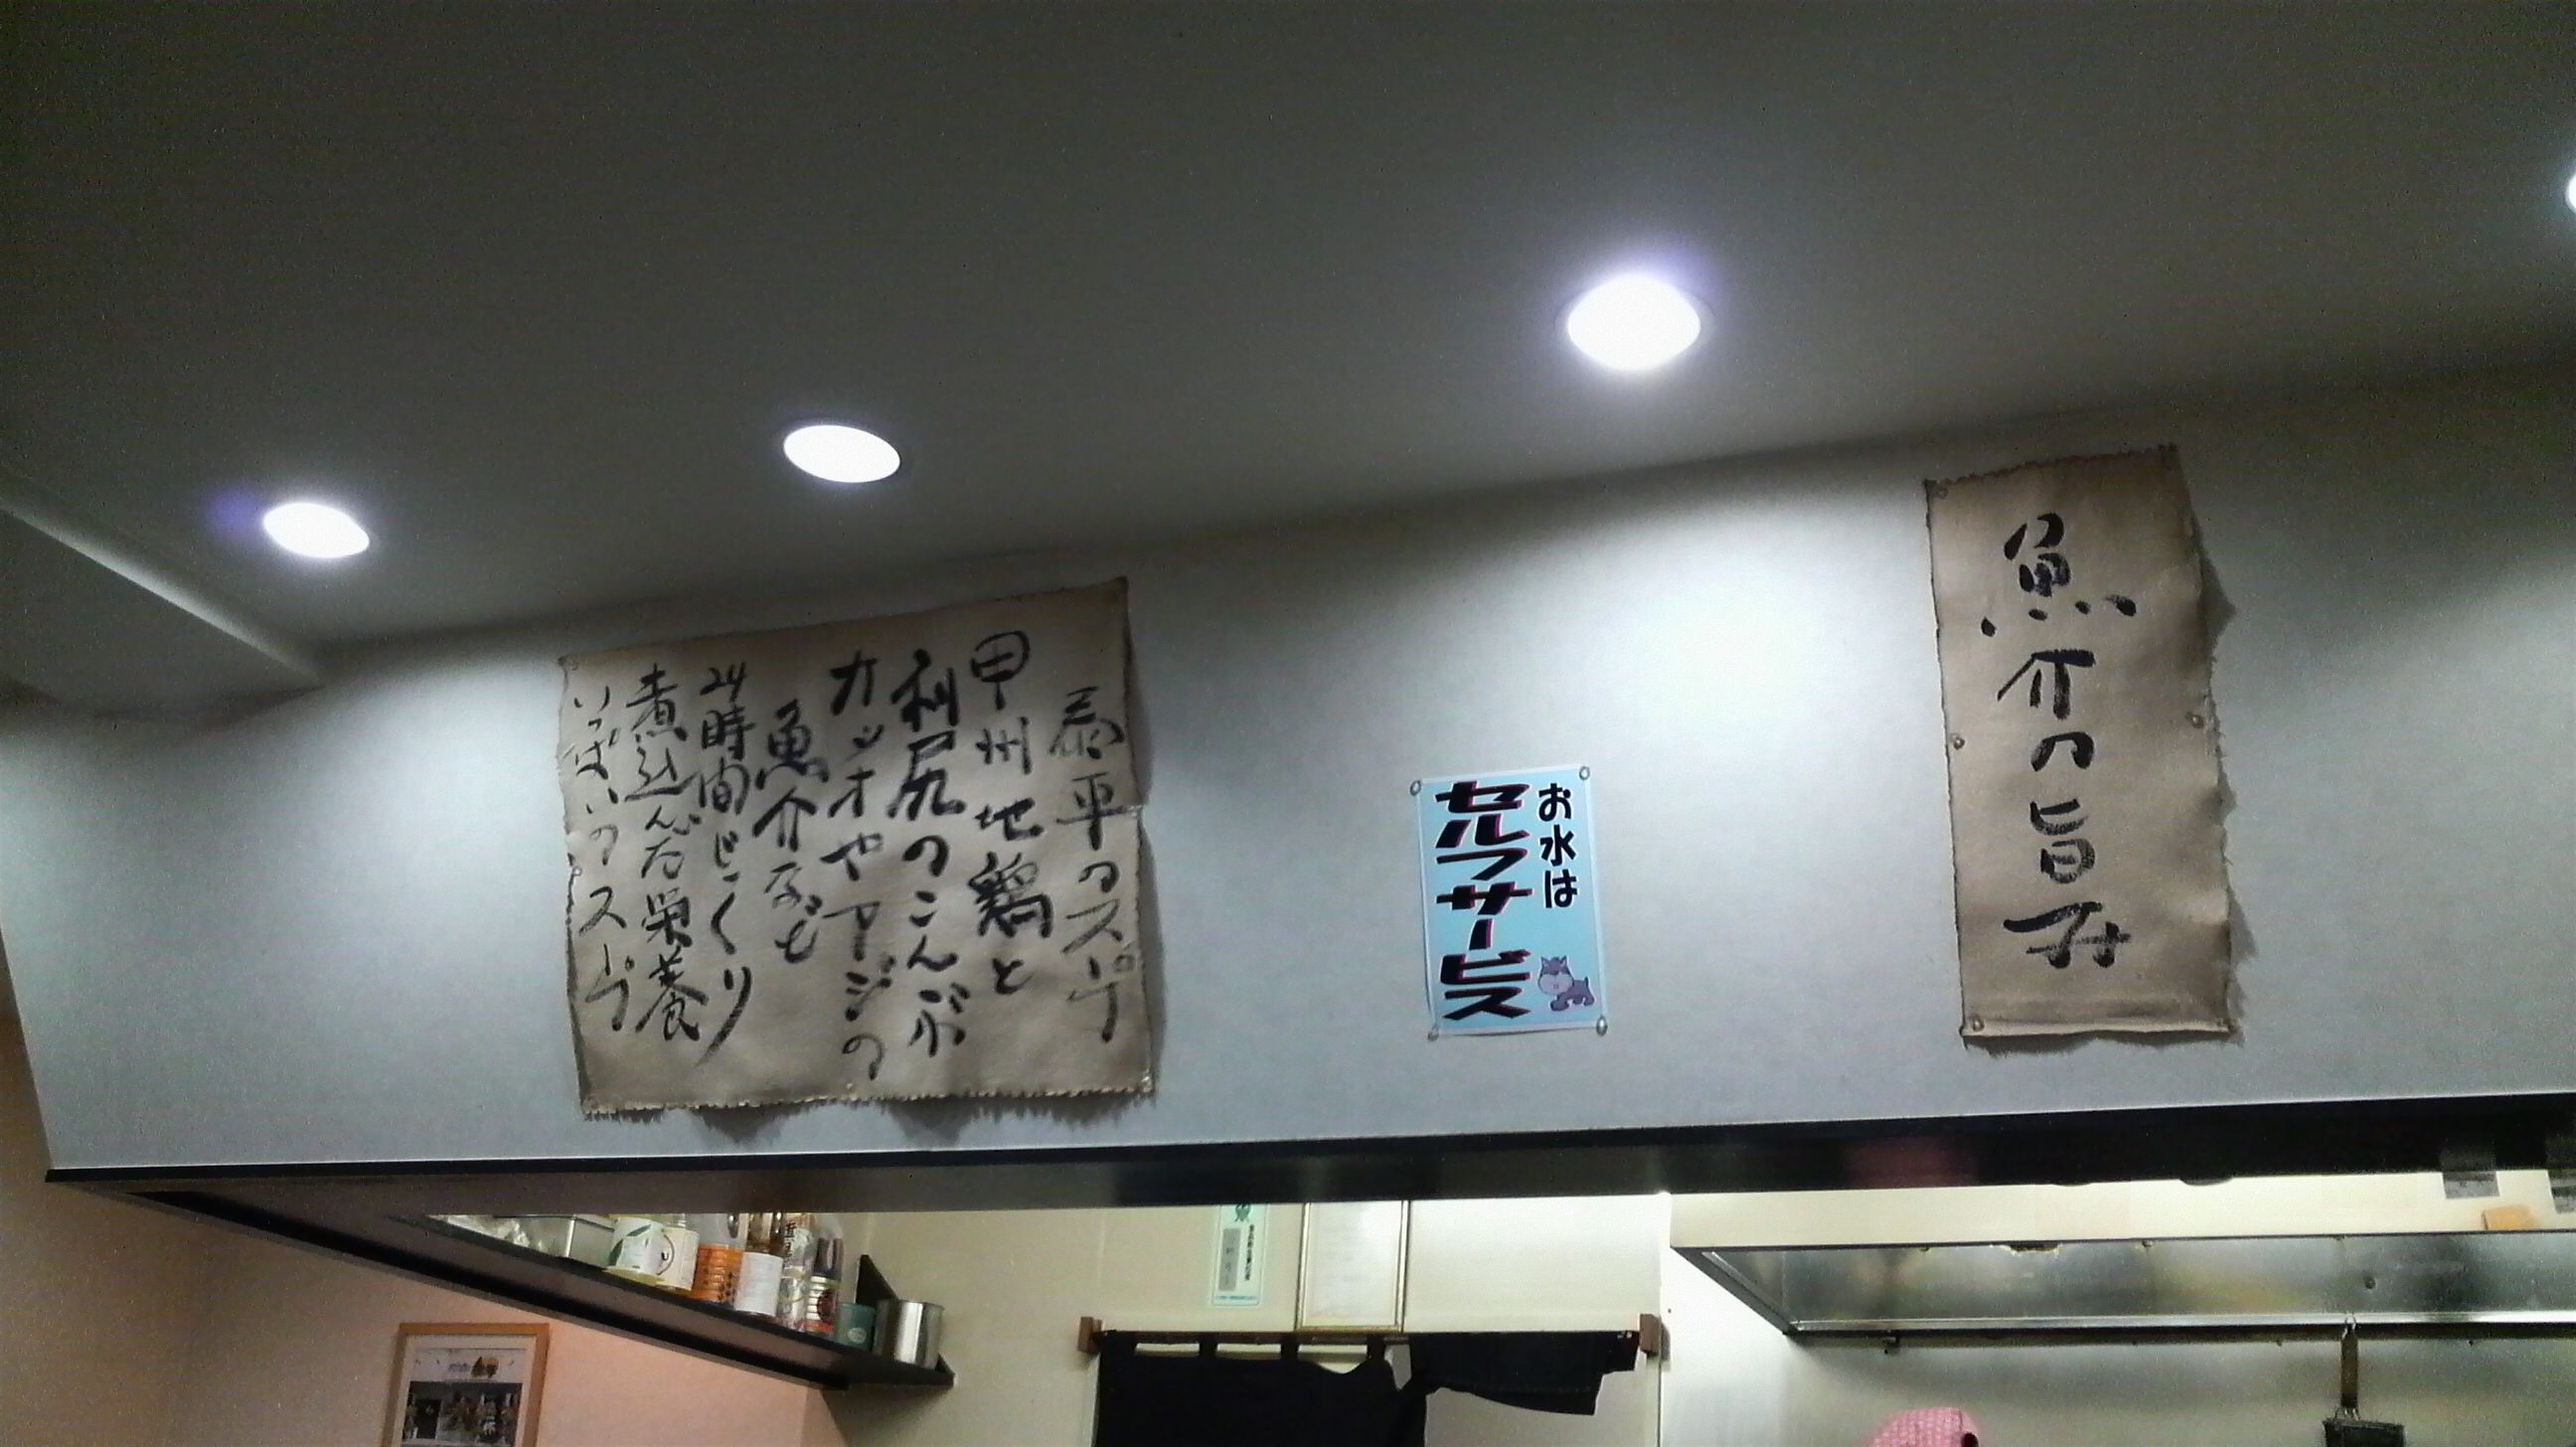 魚介の旨み
お水は
セルフサービス
泰平のスープ
甲州地鶏と
利尻のこんぶ
カツオやアジの
魚介など
24時間じっくり
煮込んだ栄養
いっぱいのスープ